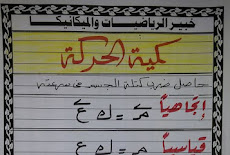 خبير الرياضيات والميكانيكا
كمية الحركة
حاصل ضرب كتلة الجسم فى سرعته
إتجاهياً مَ = ك عَ
قياسياً م = ك ع